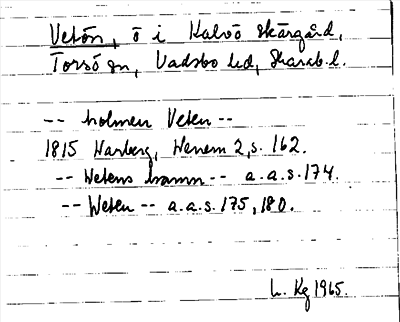 Vetön, ö i Kalvö skärgård,
Torsö sn, Vadsbo hd, Skarab.l.
-- holmen Veten --
1815 Warberg, Wenern 2, s. 162.
-- Wetens hamn -- a.a.s. 174.
-- Weten -- a.a.s. 175, 180.
L. Kg 1965.